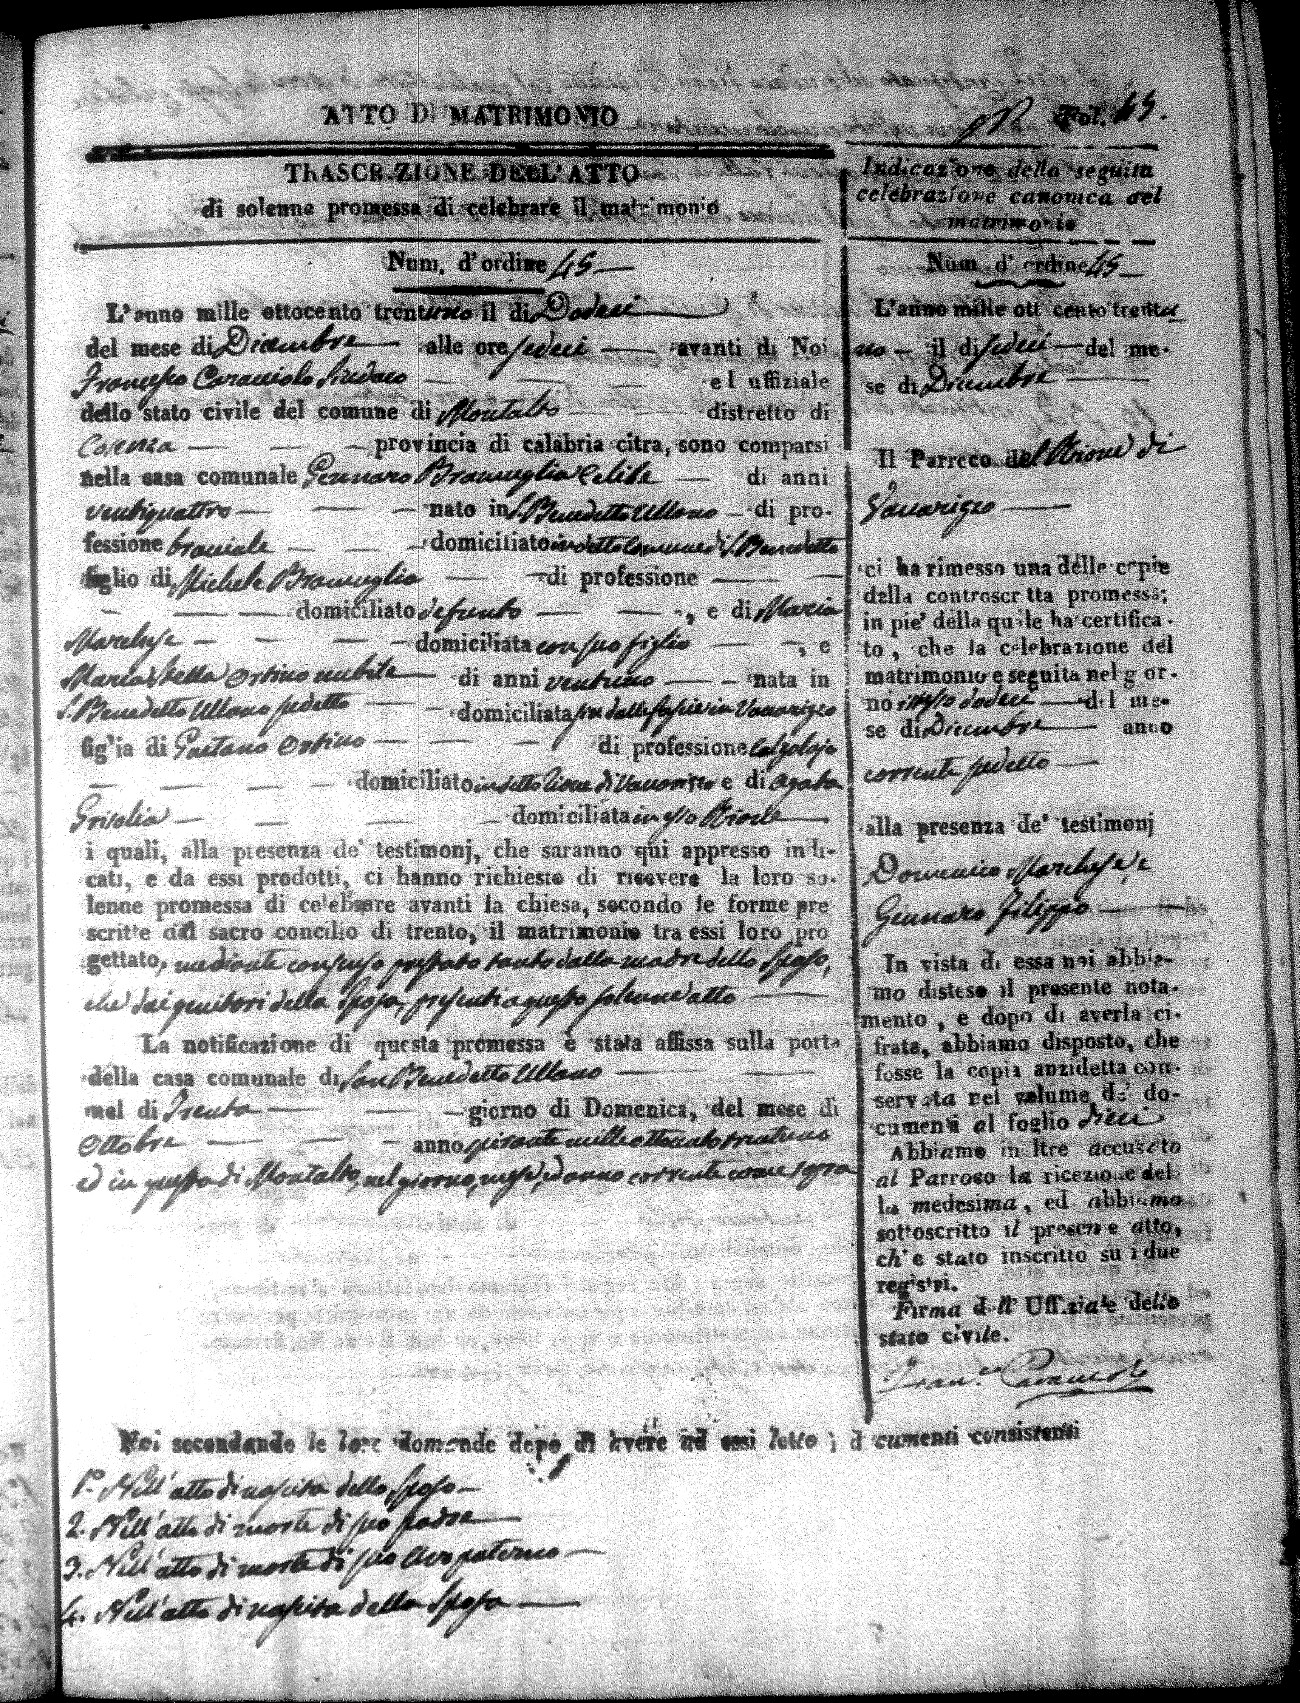 ATTO DI MATRIMONIO
Fol. 45.
TRASCRIZIONE DELL'ATTO
di solenne promessa di celebrare il matrimonio
Num. d'ordine 45
L'anno mille ottocento trentuno il di Dodeci
del mese di Dicembre alle ore sedeci avanti di Noi
Francesco Caracciolo Sindaco ed uffiziale
dello stato civile del comune di Montalto distretto di
Cosenza provincia di calabria citra, sono comparsi
nella casa comunale Gennaro Bramuglia Celibe di anni
ventiquattro nato in S. Benedetto Ullano di pro-
fessione bracciale domiciliato in detto Comune di S. Benedetto
figlio di Michele Bramuglia di professione
domiciliato defunto , e di Maria
Marchese domiciliata con suo figlio , e
Maria Stella Ortino nubile di anni ventuno nata in
S. Benedetto Ullano sudetto domiciliata in Vaccarizzo
figlia di Gaetano Ortino di professione Calzolajo
domiciliato in detto Rione di Vaccarizzo e di Agata
Grisolia domiciliata in esso Rione
i quali, alla presenza de' testimonj, che saranno qui appresso indi-
cati, e da essi prodotti, ci hanno richiesto di ricevere la loro so-
lenne promessa di celebrare avanti la chiesa, secondo le forme pre
scritte dal sacro concilio di trento, il matrimonio tra essi loro pro
gettato, mediante consenso prestato tanto dalla madre dello Sposo,
che dai genitori della Sposa, presenti a questo solenne atto
La notificazione di questa promessa è stata affissa sulla porta
della casa comunale di San Benedetto Ullano
nel di Trenta giorno di Domenica, del mese di
Ottobre anno mille ottocento trentuno
ed in questa di Montalto, nel giorno, mese, ed anno corrente come sopra
Indicazione della seguita
celebrazione canonica del
matrimonio
Num. d'ordine 45
L'anno mille ott cento trentu
no il di sedeci del me-
se di Dicembre
Il Parroco del Rione di
Vaccarizzo
ci ha rimesso una delle copie
della controscritta promessa;
in pie' della quale ha certifica-
to, che la celebrazione del
matrimonio e seguita nel gior-
no dodeci del me-
se di Dicembre anno
corrente sudetto
alla presenza de' testimonj
Domenico Marchese, e
Gennaro Filippo
In vista di essa noi abbia-
mo disteso il presente nota-
mento, e dopo di averla ci-
frata, abbiamo disposto, che
fosse la copia anzidetta con-
servata nel volume de' do-
cumenti al foglio dieci
Abbiamo in ltre accusato
al Parroco la ricezione del
la medesima, ed abbiamo
sottoscritto il presente atto,
ch'e stato inscritto su i due
registri.
Firma dell' Uffiziale dello
stato civile.
Fran.co Caracciolo
Noi secondando le loro domande dopo di avere ad essi letto i documenti consistenti
1. Nell'atto di nascita dello Sposo
2. Nell'atto di morte di suo padre
3. Nell'atto di morte di suo Avo paterno
4. Nell'atto di nascita della Sposa